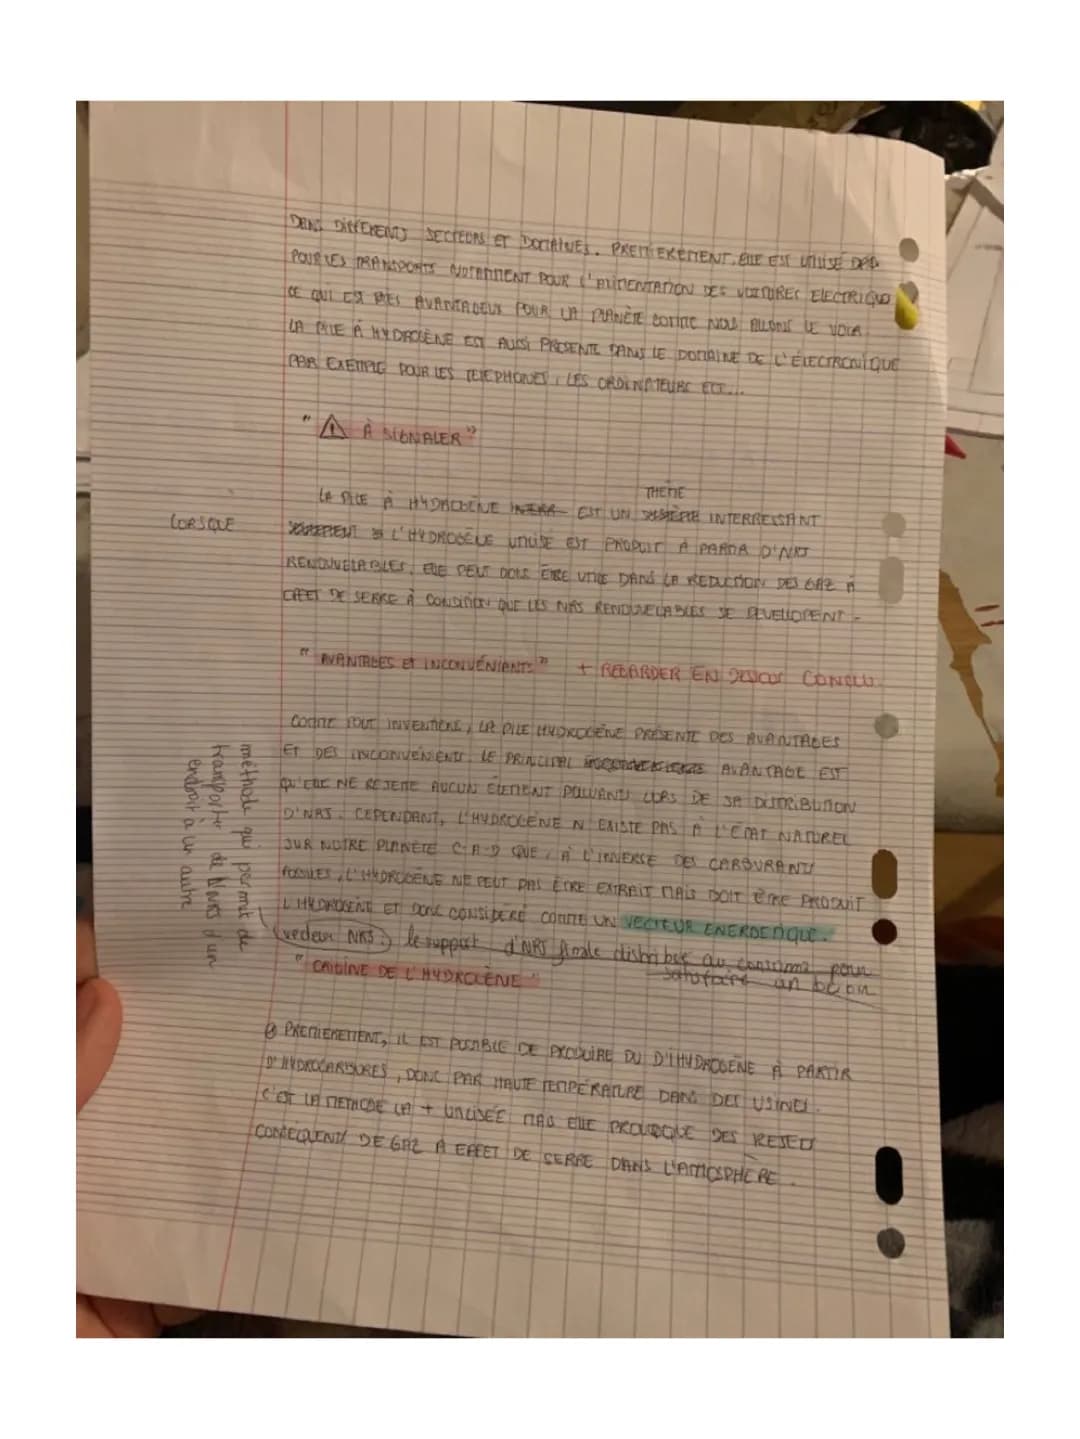 DANS DIFFÉRENTS SECTEURS ET DOMAINES. PREMIÈREMENT, ELLE EST UTILISÉ
POUR LES TRANSPORTS NOTAMMENT POUR L'ALIMENTATION DES VOITURES ELECTRIQUE
CE QUI EST TRÈS AVANTAGEUX POUR LA PLANÈTE COMME NOUS ALLONS LE VOIR.
LA PILE À HYDROGÈNE EST AUSSI PRESENTE DANS LE DOMAINE DE L'ÉLECTRONIQUE
PAR EXEMPLE POUR LES TELEPHONES, LES ORDINATEURS ECT...
"⚠ À SIGNALER"
THÈME
LA PILE À HYDROGÈNE EST UN INTERRESSANT
LORSQUE
L'HYDROGÈNE UTILISÉ EST PRODUIT À PARTIR D'NRJ
RENOUVELABLES, ELLE PEUT DONC ÊTRE UTILE DANS LA REDUCTION DES GAZ À
EFFET DE SERRE À CONDITION QUE LES NRJS RENOUVELABLES SE DEVELLOPENT.
"AVANTAGES ET INCONVÉNIANTS" + REGARDER EN DESSOUS CONCLU.
COMME TOUT INVENTIONS, LA PILE HYDROGÈNE PRÉSENTE DES AVANTAGES
ET DES INCONVÉNIENTS. LE PRINCIPAL AVANTAGE EST
QU'ELLE NE REJETTE AUCUN ÉLEMENT POLLUANTS LORS DE SA DISTRIBUTION
D'NRJ. CEPENDANT, L'HYDROGÈNE N'EXISTE PAS À L'ÉTAT NATUREL
SUR NOTRE PLANÈTE C-A-D QUE, À L'INVERSE DES CARBURANTS
FOSSILES, L'HYDROGÈNE NE PEUT PAS ÊTRE EXTRAIT MAIS DOIT ÊTRE PRODUIT
L'HYDROGÈNE EST DONC CONSIDÉRÉ COMME UN VECTEUR ENERGETIQUE.
(vecteur NRJ:) le support d'NRJ finale distribué au consomm. pour
satisfaire un besoin
méthode qui permet de
transporter de l'NRJ d'un
endroit à un autre
"ORIGINE DE L'HYDROGÈNE"
PREMIEREMENT, IL EST POSSIBLE DE PRODUIRE DU D'IHYDROGÈNE À PARTIR
D'HYDROCARBURES, DONC PAR HAUTE TEMPÉRATURE DANS DES USINES.
C'EST LA METHODE LA + UTILISÉE MAIS ELLE PROVOQUE DES REJETS
CONSÉQUENTS DE GAZ À EFFET DE SERRE DANS L'ATMOSPHÈRE.